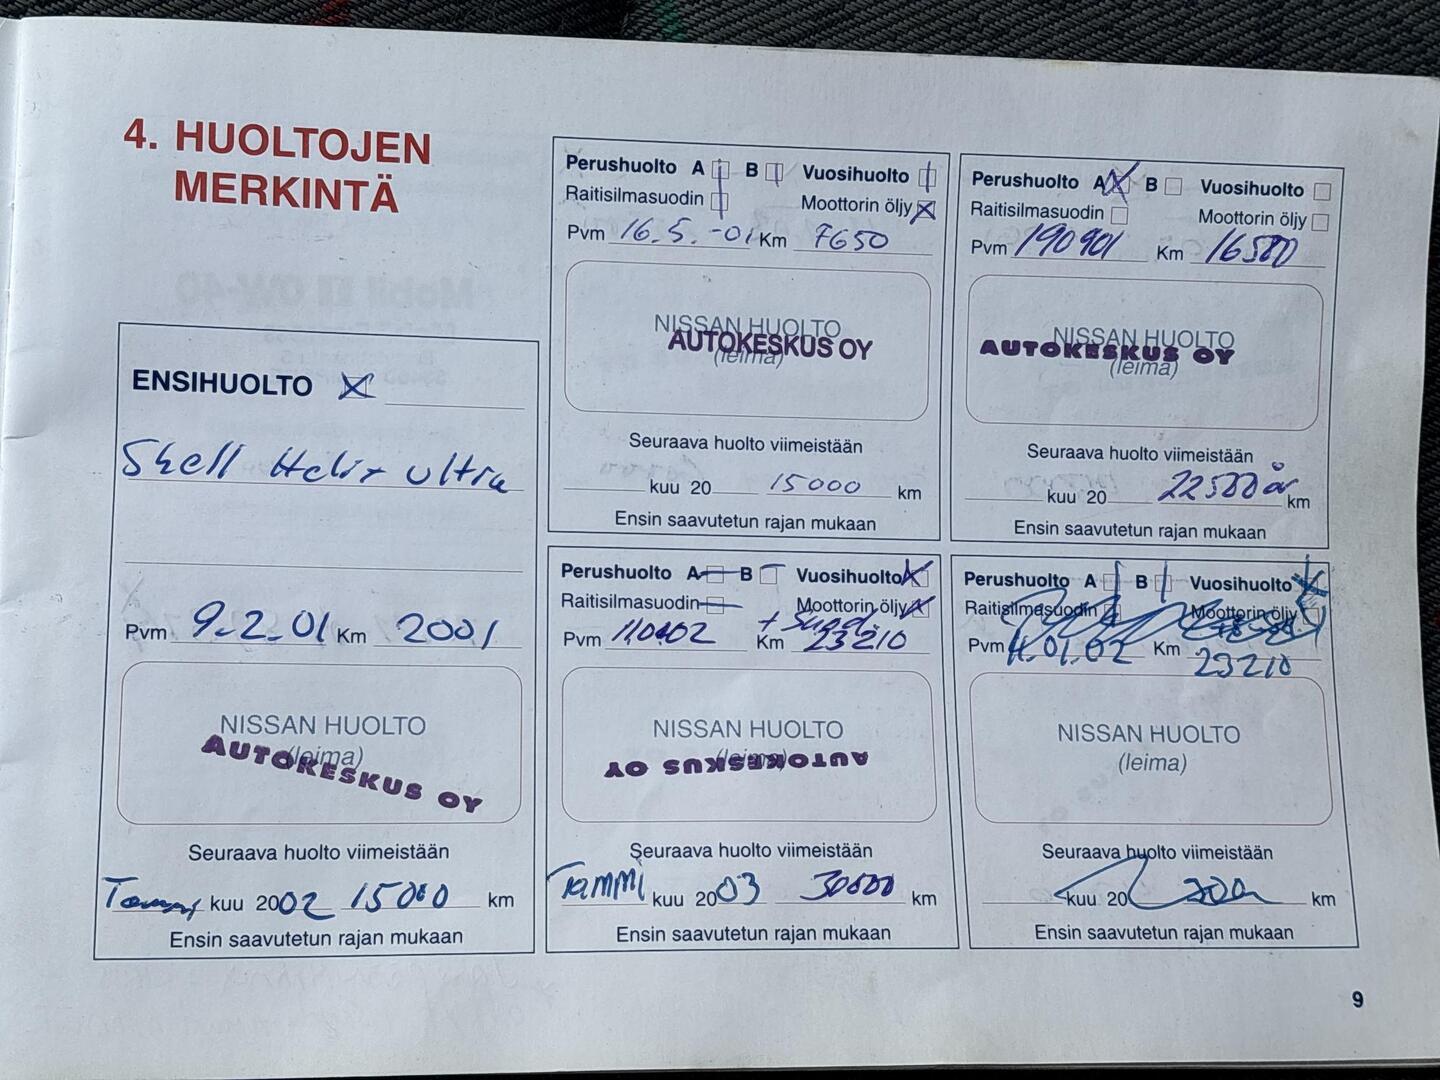 4. HUOLTOJEN
MERKINTÄ
ENSIHUOLTO
Shell Helix ultra
Pvm 9.2.01 Km 2001
NISSAN HUOLTO
(leima)
AUTOKESKUS OY
Seuraava huolto viimeistään
Tammi kuu 2002 15000 km
Ensin saavutetun rajan mukaan
Perushuolto A B Vuosihuolto
Raitisilmasuodin Moottorin öljy
Pvm 16.5.-01 Km 7650
NISSAN HUOLTO
AUTOKESKUS OY
(leima)
Seuraava huolto viimeistään
kuu 20 15000 km
Ensin saavutetun rajan mukaan
Perushuolto A B Vuosihuolto
Raitisilmasuodin Moottorin öljy
Pvm 190901 Km 16500
NISSAN HUOLTO
AUTOKESKUS OY
(leima)
Seuraava huolto viimeistään
kuu 20 22500 km
Ensin saavutetun rajan mukaan
Perushuolto A B Vuosihuolto
Raitisilmasuodin Moottorin öljy
Pvm Km 23210
NISSAN HUOLTO
(leima)
AUTOKESKUS OY
Seuraava huolto viimeistään
Tammi kuu 2003 30000 km
Ensin saavutetun rajan mukaan
Perushuolto A B Vuosihuolto
Raitisilmasuodin Moottorin öljy
Pvm 4.01.02 Km 23210
NISSAN HUOLTO
(leima)
Seuraava huolto viimeistään
kuu 20 km
Ensin saavutetun rajan mukaan
9